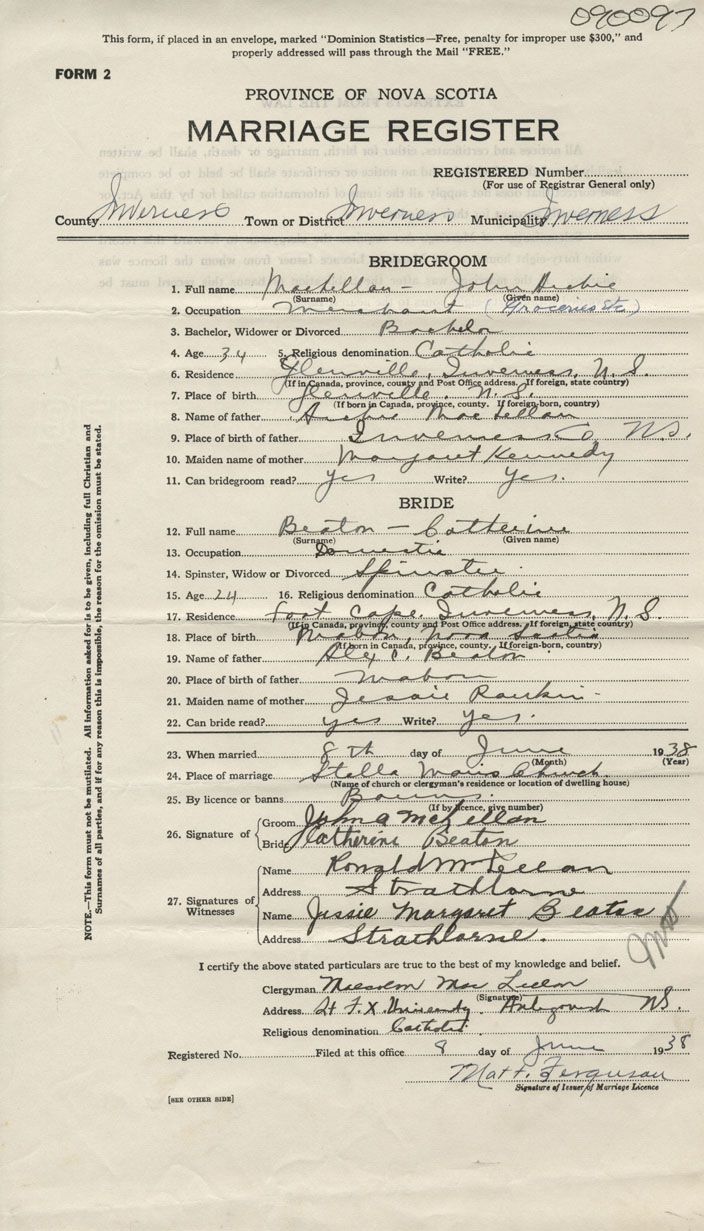 090097
This form, if placed in an envelope, marked "Dominion Statistics—Free, penalty for improper use $300," and
properly addressed will pass through the Mail "FREE."
FORM 2
PROVINCE OF NOVA SCOTIA
MARRIAGE REGISTER
REGISTERED Number
(For use of Registrar General only)
County Inverness Town or District Inverness Municipality Inverness
BRIDEGROOM
1. Full name MacLellan - John Archie
(Surname) (Given name)
2. Occupation Merchant (Groceries etc)
3. Bachelor, Widower or Divorced Bachelor
4. Age 34 5. Religious denomination Catholic
6. Residence Glenville, Inverness, N.S.
(If in Canada, province, county and Post Office address. If foreign, state country)
7. Place of birth Glenville. N.S.
(If born in Canada, province, county. If foreign-born, country)
8. Name of father Archie MacLellan
9. Place of birth of father Inverness Co NS.
10. Maiden name of mother Margaret Kennedy
11. Can bridegroom read? yes Write? Yes.
BRIDE
12. Full name Beaton - Catherine
(Surname) (Given name)
13. Occupation Domestic
14. Spinster, Widow or Divorced Spinster.
15. Age 24 16. Religious denomination Catholic
17. Residence Foot Cape, Inverness, N.S.
(If in Canada, province, county and Post Office address. If foreign, state country)
18. Place of birth Mabou, Nova Scotia
(If born in Canada, province, county. If foreign-born, country)
19. Name of father Alex C. Beaton
20. Place of birth of father Mabou
21. Maiden name of mother Jessie Rankin-
22. Can bride read? yes Write? yes.
23. When married 8th day of June 1938
(Month) (Year)
24. Place of marriage Stella Maris Church
(Name of church or clergyman's residence or location of dwelling house)
25. By licence or banns Banns.
(If by licence, give number)
26. Signature of Groom John A McLellan
Bride Catherine Beaton
27. Signatures of Witnesses
Name Ronald McLellan
Address Strathlorne
Name Jessie Margaret Beaton
Address Strathlorne.
I certify the above stated particulars are true to the best of my knowledge and belief.
Clergyman Malcolm MacLellan
(Signature)
Address St F.X. University. Antigonish NS.
Religious denomination Catholic
Registered No. Filed at this office 8 day of June 1938
Matt. Ferguson
Signature of Issuer of Marriage Licence
[SEE OTHER SIDE]
NOTE.—This form must not be mutilated. All information asked for is to be given, including full Christian and
Surnames of all parties, and if for any reason this is impossible, the reason for the omission must be stated.